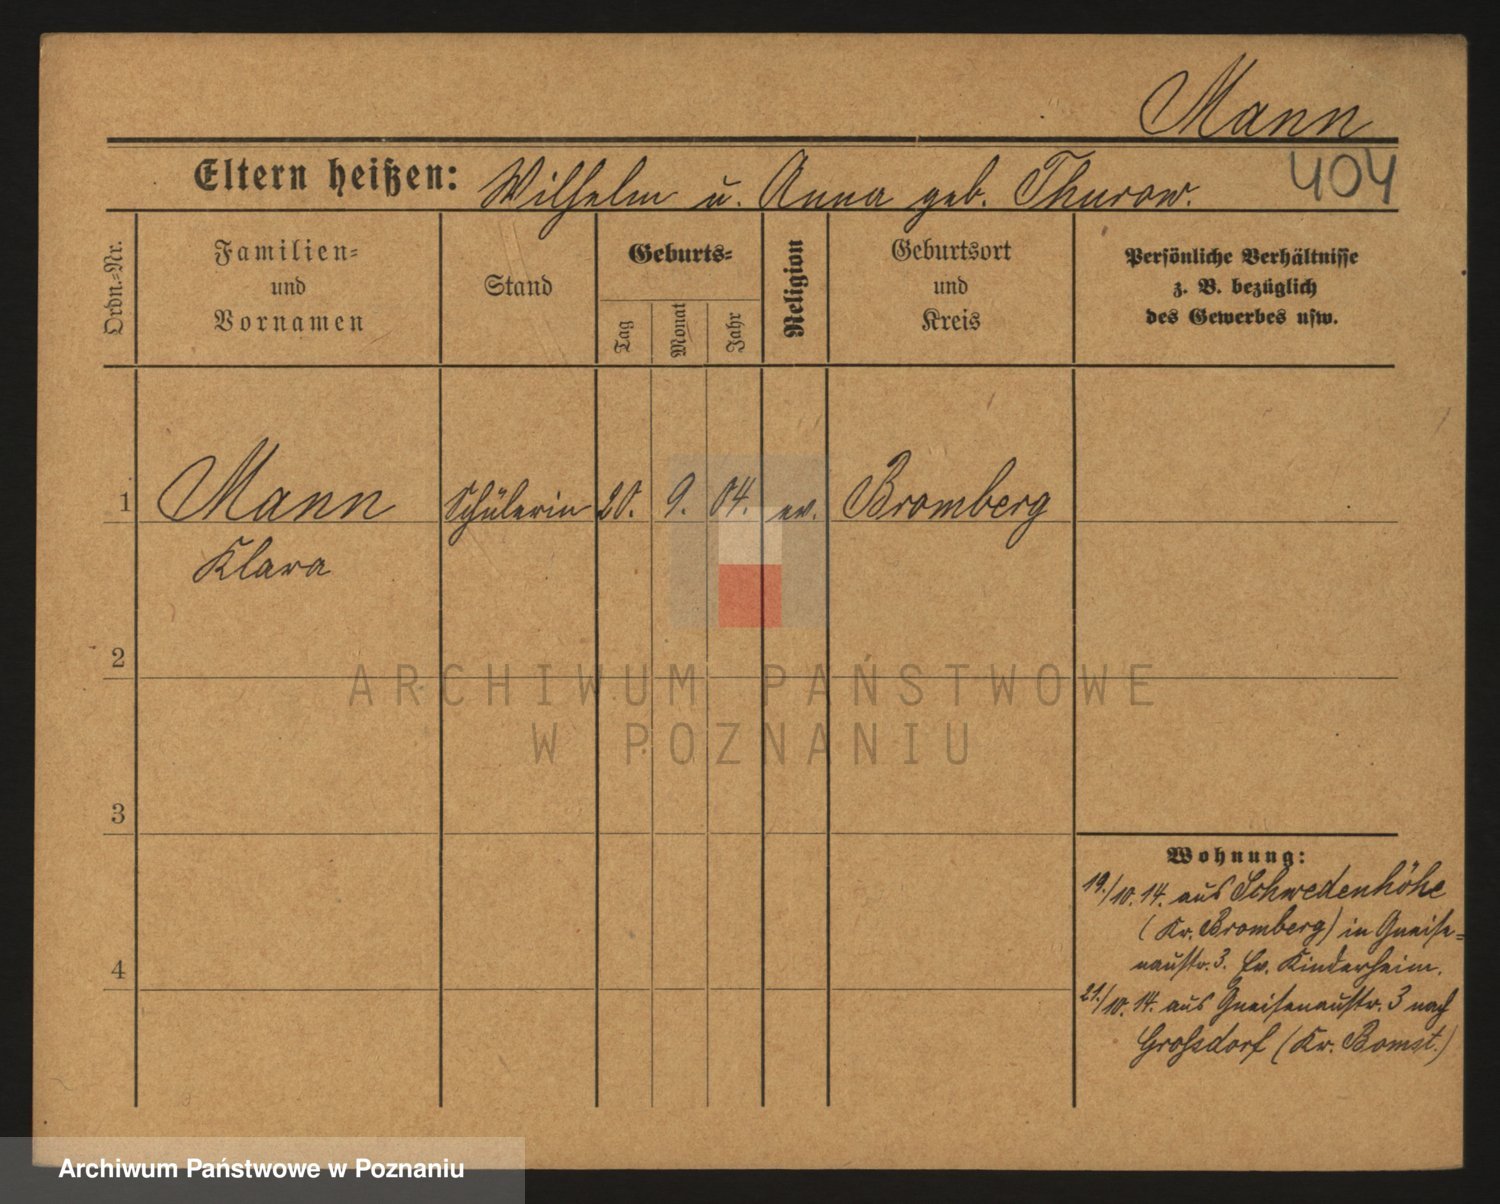 Mann
404
Eltern heißen: Wilhelm u. Anna geb. Thurow.
Ordn.=Nr.
Familien=
und
Vornamen
Stand
Geburts=
Tag
Monat
Jahr
Religion
Geburtsort
und
Kreis
Persönliche Verhältnisse
z. B. bezüglich
des Gewerbes usw.
1 Mann Schülerin 20. 9. 04. ev. Bromberg
Klara
2
ARCHIWUM PAŃSTWOWE
W POZNANIU
3
Wohnung:
19./10. 14. aus Schwedenhöhe
(Kr. Bromberg) in Gneise=
naustr. 3. Ev. Kinderheim.
4
21./10. 14. aus Gneisenaustr. 3 nach
Grossdorf (Kr. Bomst.)
Archiwum Państwowe w Poznaniu